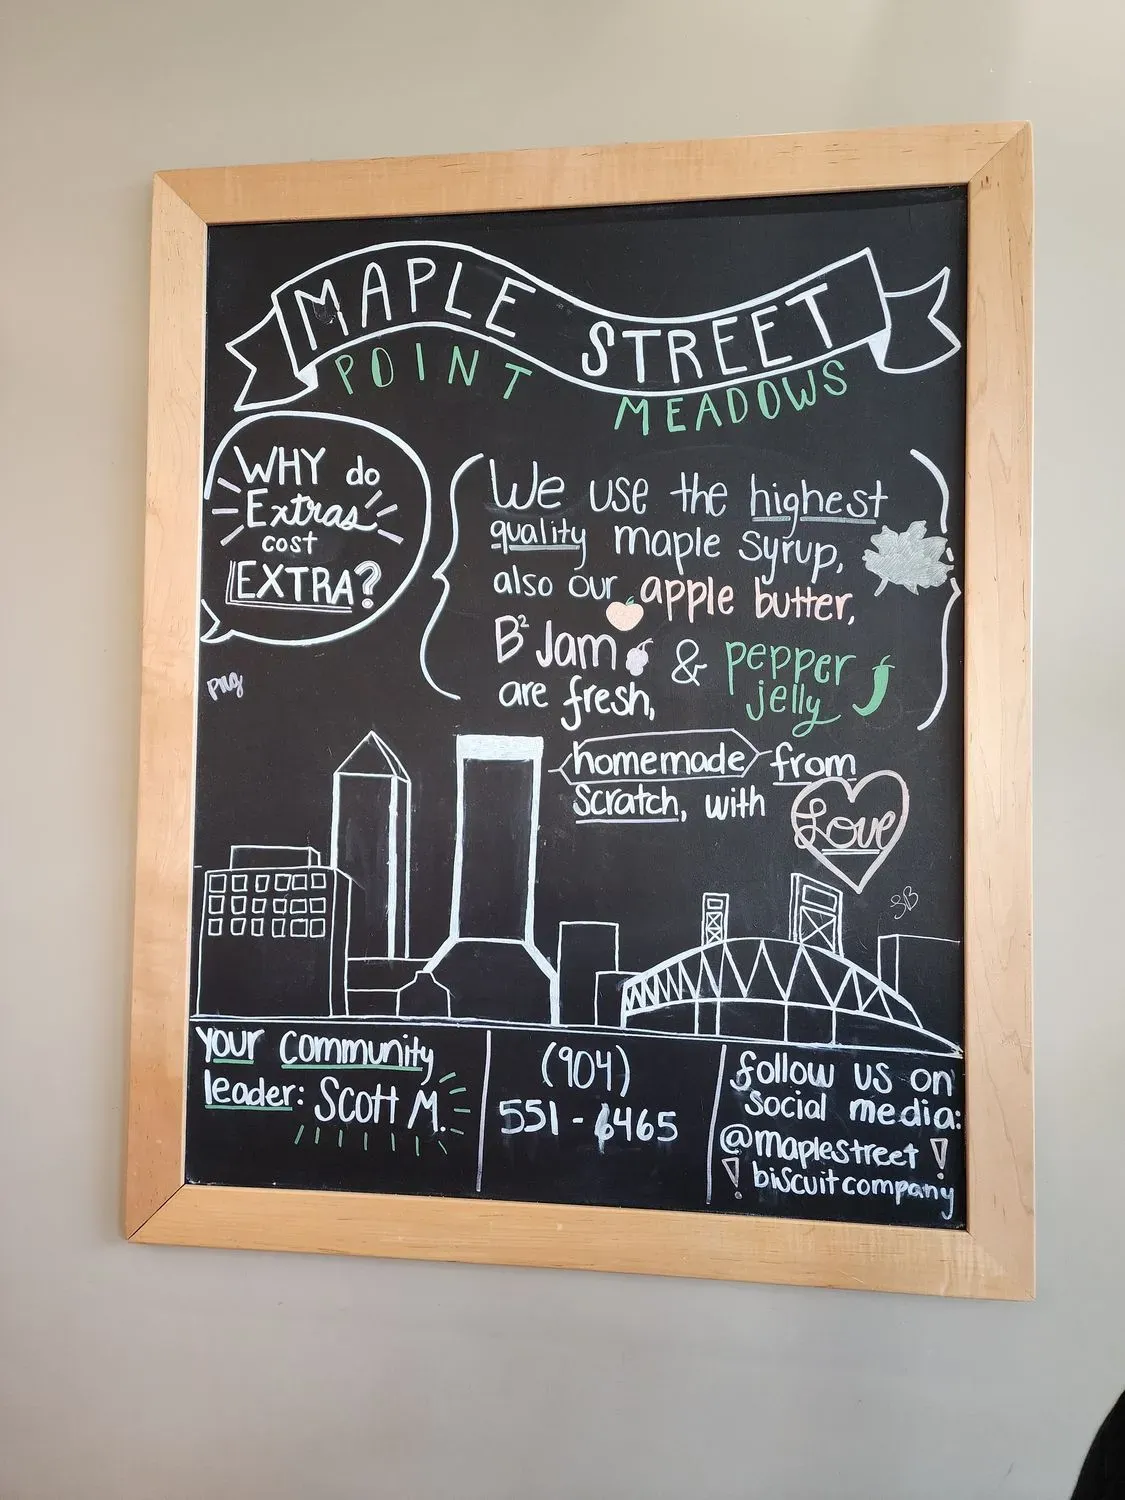 MAPLE STREET
POINT MEADOWS
WHY do
Extras
cost
EXTRA?
We use the highest
quality maple syrup,
also our apple butter,
B² Jam & pepper
jelly
are fresh,
homemade from
scratch, with Love
Your Community
leader: Scott M.
(904)
551-6465
follow us on
social media:
@maplestreet
biscuitcompany